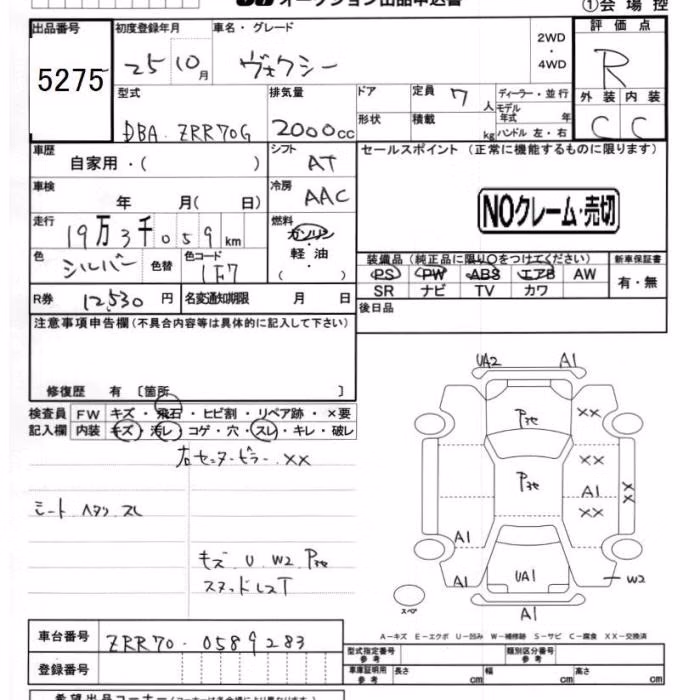 オークション出品申込書 ①会場控
出品番号 初度登録年月 車名・グレード 2WD ・ 4WD 評価点
5275 25 10月 ヴォクシー R
型式 排気量 ドア 定員 7人 ディーラー・並行 外装 内装
DBA-ZRR70G 2000cc 形状 積載 kg モデル年式 年 C C
ハンドル 左・右
車歴 自家用・( ) シフト AT セールスポイント(正常に機能するものに限ります)
車検 年 月( 日) 冷房 AAC NOクレーム・売切
走行 19万3千059km 燃料 ガソリン・軽油・( )
色 シルバー 色替 色コード 1F7 装備品(純正品に限り〇をつけてください) 新車保証書
PS PW ABS エアB AW 有・無
SR ナビ TV カワ
R券 12,530円 名変通知期限 月 日 後日品
注意事項申告欄(不具合内容等は具体的に記入して下さい)
修復歴 有〔箇所 〕
検査員 FW キズ・飛石・ヒビ割・リペア跡・×要
記入欄 内装 キズ・汚レ・コゲ・穴・スレ・キレ・破レ
右センターピラー XX
シート ヘタリ スレ
キズ U W2 P3セ
スタッドレスT
UA2 A1
P3セ XX
XX
P3セ A1 XX
XX
A1
A1 UA1 W2
スペ A1
A-キズ E-エクボ U-凹み W-補修跡 S-サビ C-腐食 XX-交換済
車台番号 ZRR70-0589283
登録番号
型式指定番号 参考 類別区分番号 参考
車庫証明用 参考 長さ cm 幅 cm 高さ cm
希望出品コーナー